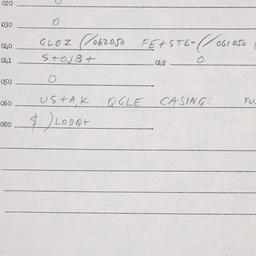 020 0
030 0
040 GLOZ (/062050 FE+STE-(/061050
041 S+OJB+ 042 0
050 0
060 US+A,K QGLE CASING FU
080 $ ) LODQ+